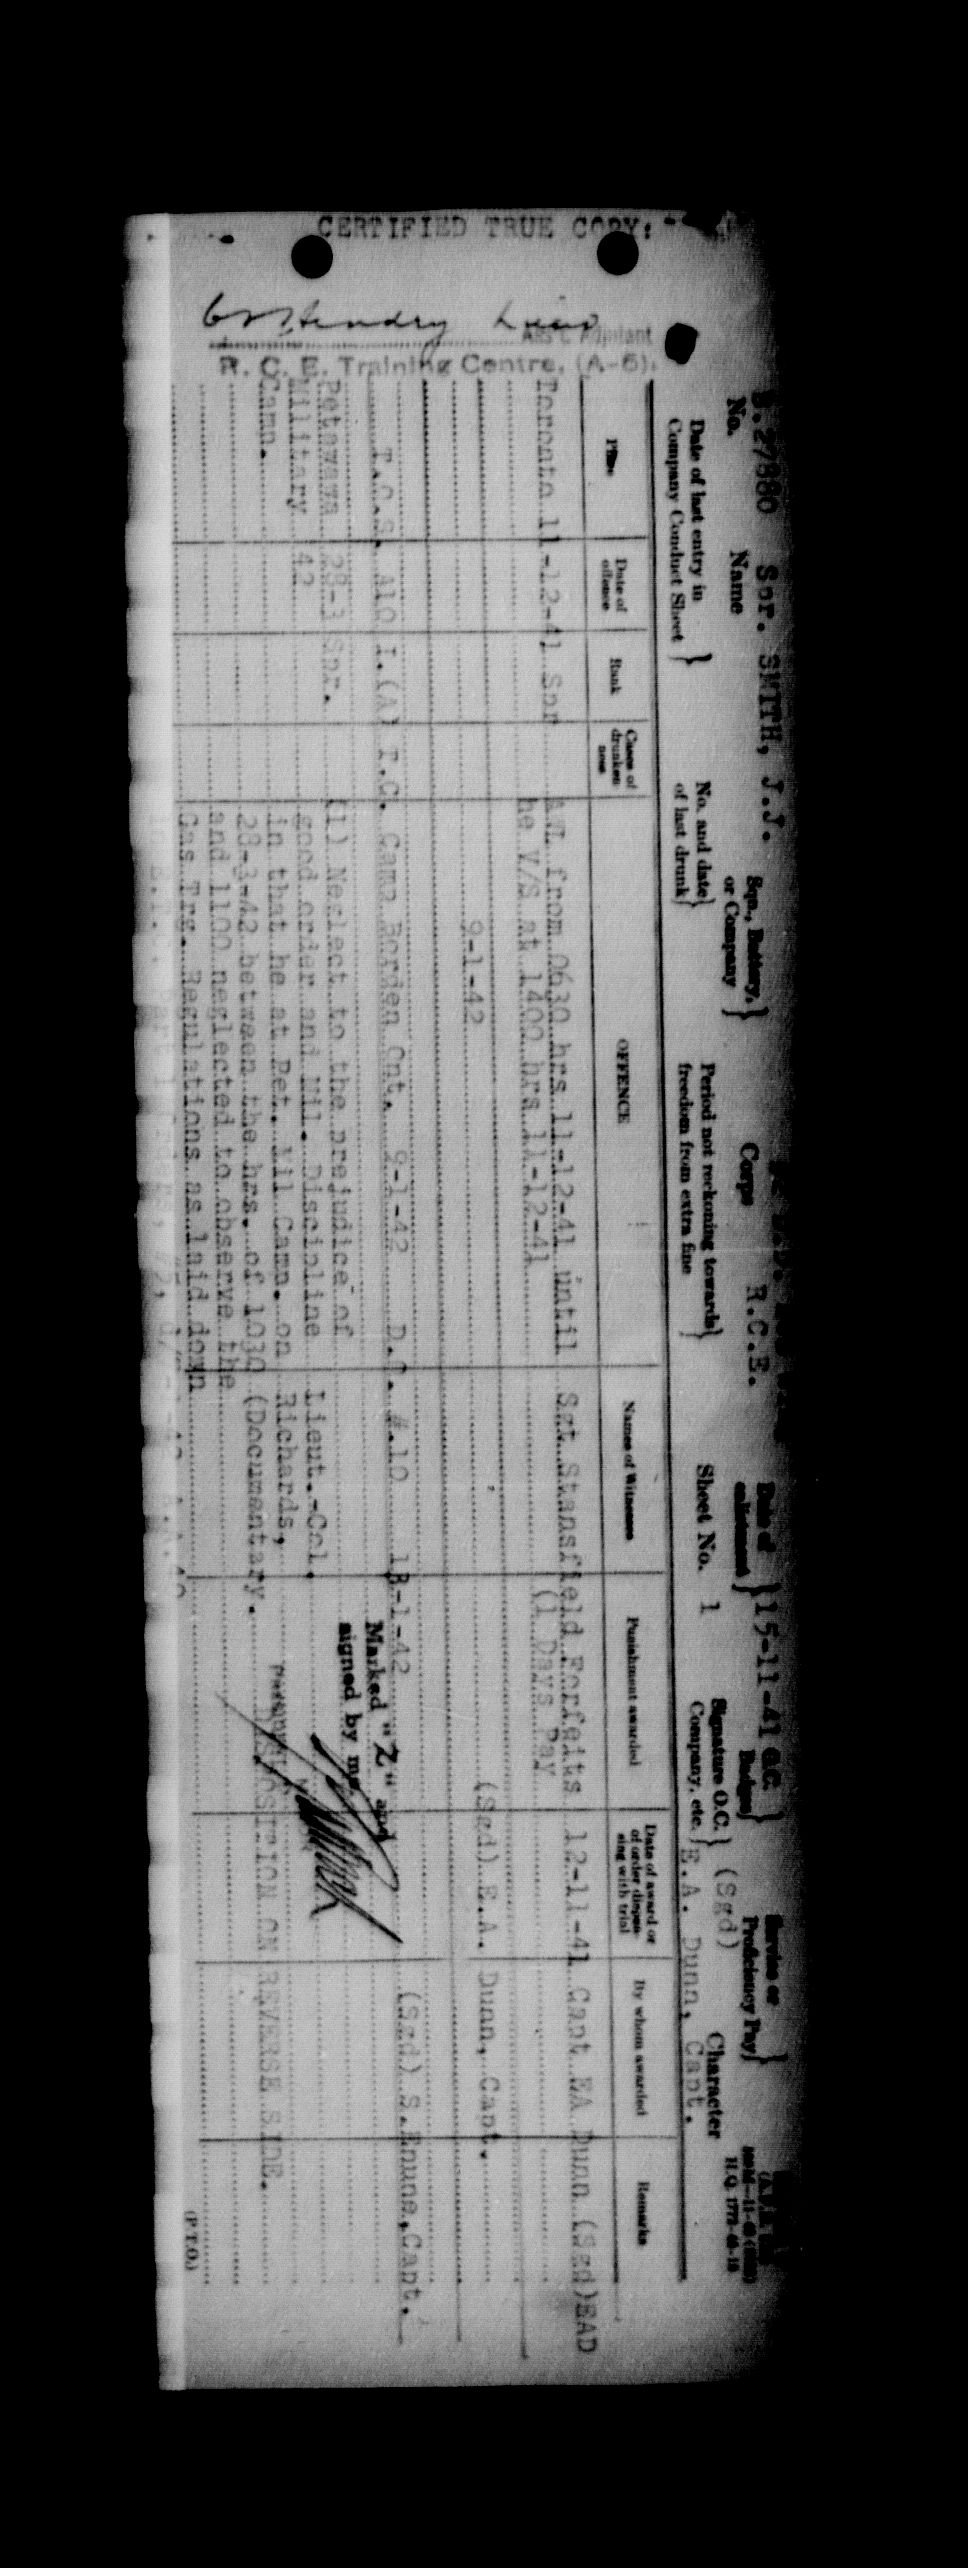 CERTIFIED TRUE COPY:
Ass't Adjutant
R. C. E. Training Centre, (A-5).
No. B.27880 Name Spr. SMITH, J.J. Sqn., Battery, or Company Corps R.C.E. Date of enlistment 15-11-41 G.C. Badges Service or Proficiency Pay
H.Q. 1772-
Date of last entry in Company Conduct Sheet
No. and date of last drunk
Period not reckoning towards freedom from extra fine
Sheet No. 1
Signature O.C. Company, etc. (Sgd) E.A. Dunn, Capt.
Character
Place Date of offence Rank Cases of drunkenness OFFENCE Names of Witnesses Punishment awarded Date of award or of order dispensing with trial By whom awarded Remarks
Toronto 11-12-41 Spr AWL from 0630 hrs 11-12-41 until Sgt Stansfield Forfeits 12-11-41 Capt EA Dunn (Sgd)EAD
he V/S at 1400 hrs 11-12-41 (1 Days Pay
9-1-42 (Sgd) E.A. Dunn, Capt.
T.O.S. A10 I.(A) T.C. Camp Borden Ont. 9-1-42 D.O. #.10 13-1-42 (Sgd) S. Capt.
Marked "Z" and
signed by me
Petawawa 28-3 Spr. (1) Neglect to the prejudice of
Military 42 good order and Mil. Discipline Lieut.-Col.
Camp. in that he at Pet. Mil Camp. on Richards,
28-3-42 between the hrs. of 1030 (Documentary.
DISPOSITION ON REVERSE SIDE.
and 1100 neglected to observe the
Gas Trg. Regulations as laid down
(P.T.O.)